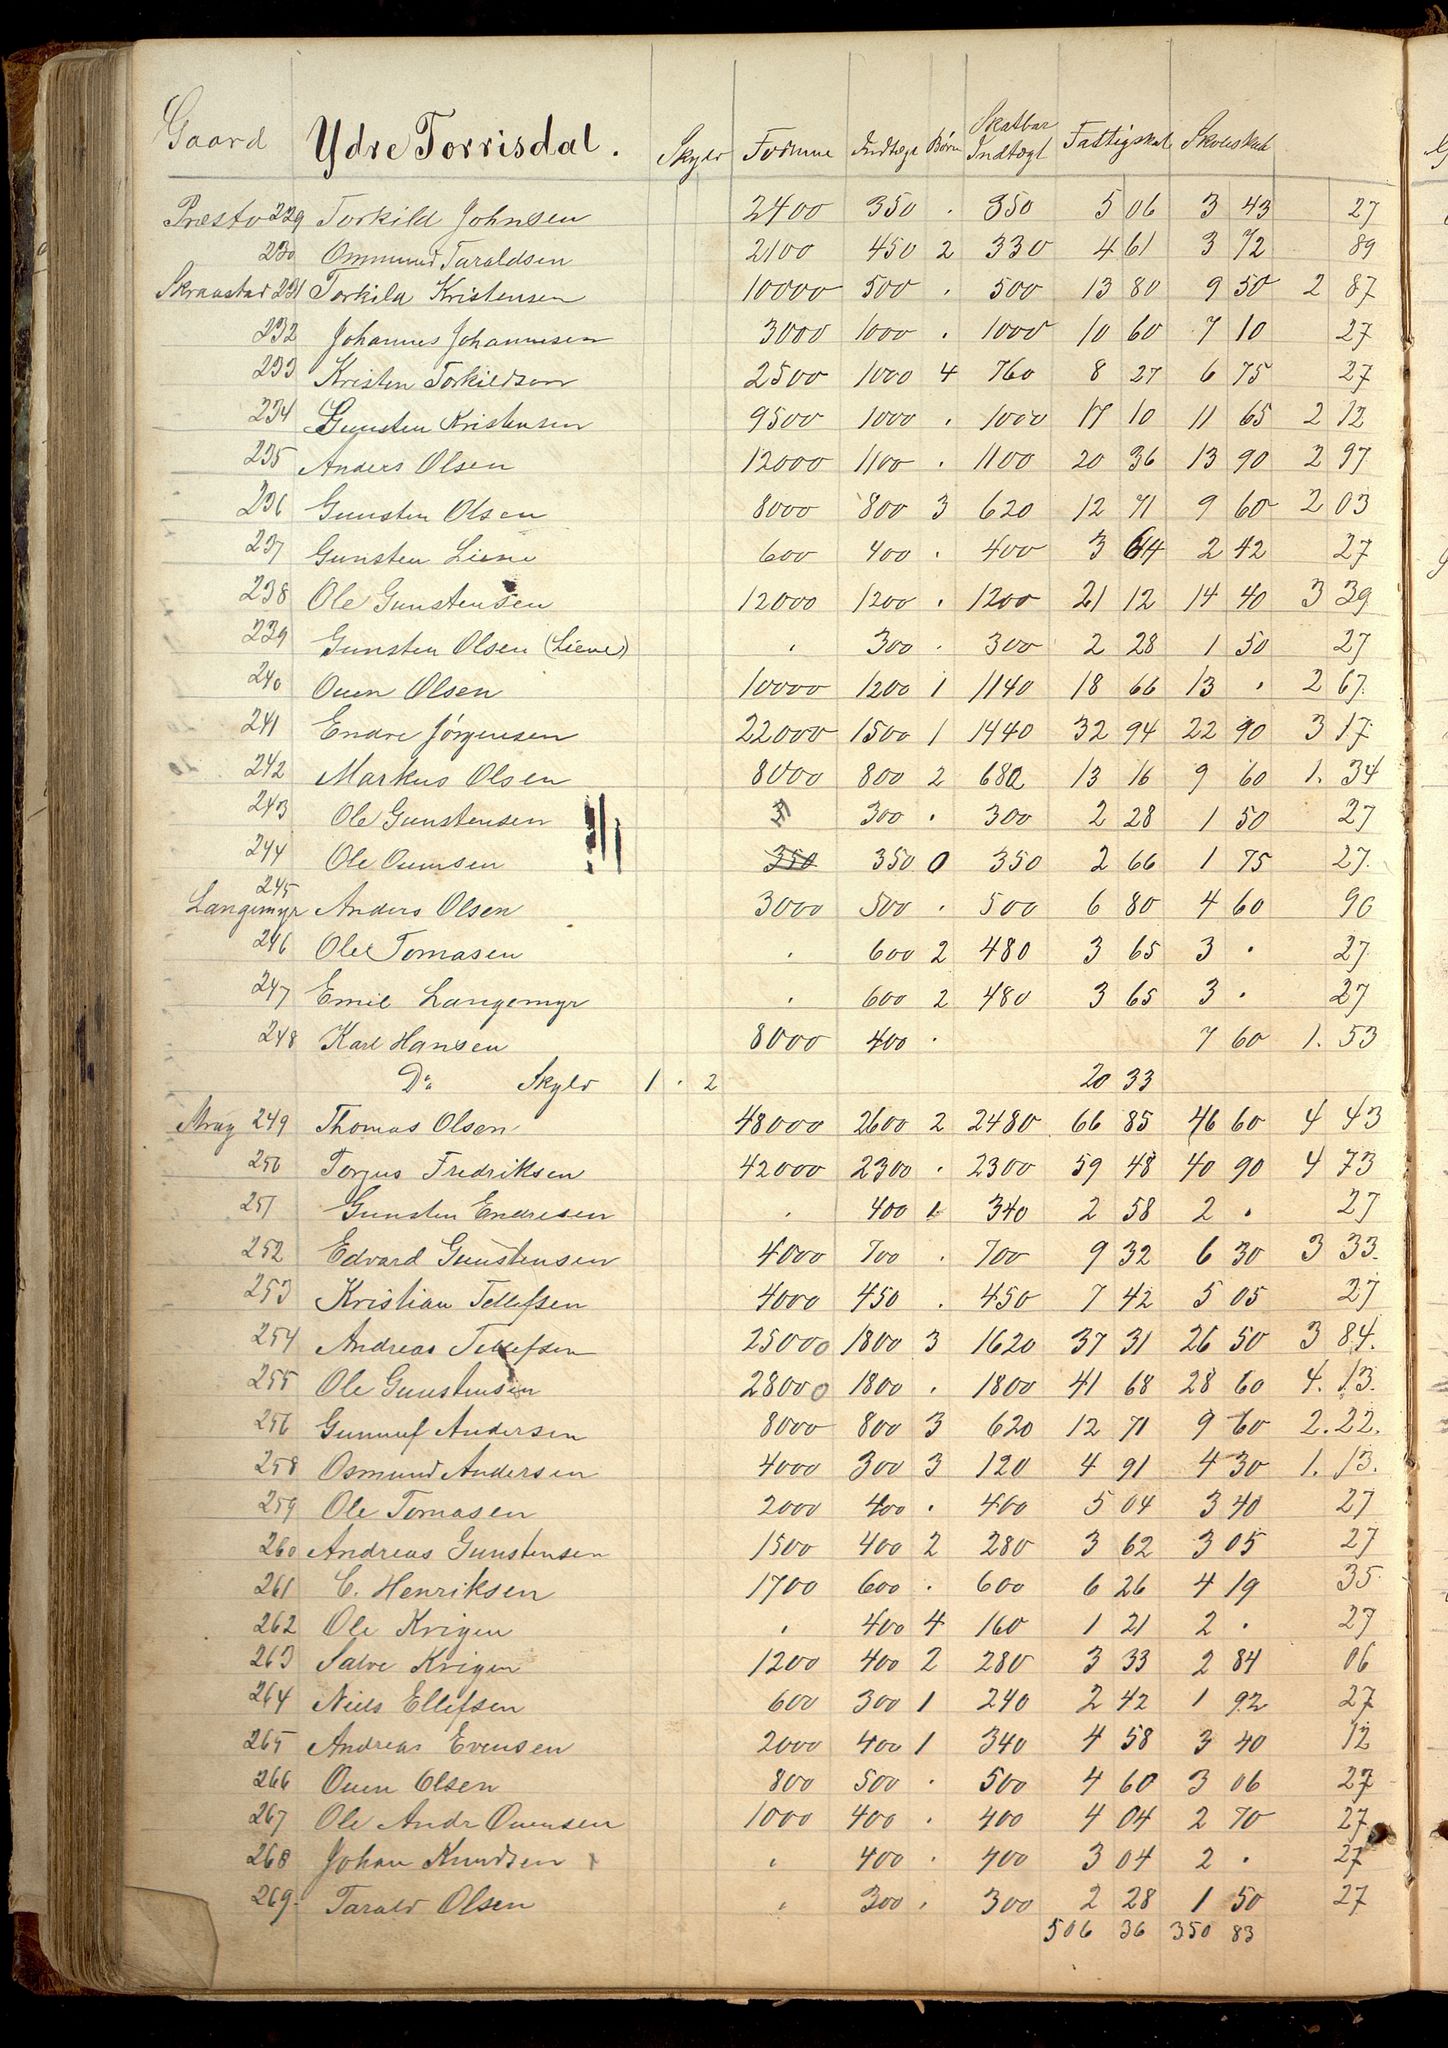 Gaard Ydre Torrisdal. Skyld Formue Indtægt Børn Skatbar Indtægt Fattigskat Skoleskat
Præstv 229 Torkild Johnsen 2400 350 . 350 5 06 3 43 27
230 Ommund Taraldsen 2100 450 2 330 4 61 3 72 89
Skraastad 231 Torkild Kristensen 10000 500 . 500 13 80 9 50 2 87
232 Johannes Johannesen 3000 1000 . 1000 10 60 7 10 27
233 Kristen Torkildsen 2500 1000 4 760 8 27 6 75 27
234 Gunsten Kristensen 9500 1000 . 1000 17 10 11 65 2 12
235 Anders Olsen 12000 1100 . 1100 20 36 13 90 2 97
236 Gunsten Olsen 8000 800 3 620 12 71 9 60 2 03
237 Gunsten Liene 600 400 . 400 3 64 2 42 27
238 Ole Gunstensen 12000 1200 . 1200 21 12 14 40 3 39
239 Gunsten Olsen (Liene) . 300 . 300 2 28 1 50 27
240 Ouen Olsen 10000 1200 1 1140 18 66 13 . 2 67
241 Endre Jørgensen 22000 1500 1 1440 32 94 22 90 3 17
242 Markus Olsen 8000 800 2 680 13 16 9 60 1. 34
243 Ole Gunstensen 300 . 300 2 28 1 50 27
244 Ole Ouensen 350 350 0 350 2 66 1 75 27.
245
Langemyr Anders Olsen 3000 500 . 500 6 80 4 60 90
246 Ole Tomasen . 600 2 480 3 65 3 . 27
247 Emil Langemyr . 600 2 480 3 65 3 . 27
248 Karl Hansen 8000 400 . 7 60 1. 53
Do Skyld 1 . 2 20 33
Kraag 249 Thomas Olsen 48000 2600 2 2480 66 85 46 60 4 43
250 Torjus Fredriksen 42000 2300 . 2300 59 48 40 90 4 73
251 Gunsten Endresen . 400 1 340 2 58 2 . 27
252 Edvard Gunstensen 4000 700 . 700 9 32 6 30 3 33.
253 Kristian Tellefsen 4000 450 . 450 7 42 5 05 27
254 Andreas Tellefsen 25000 1800 3 1620 37 31 26 50 3 84.
255 Ole Gunstensen 28000 1800 . 1800 41 68 28 60 4. 13.
256 Gunnuf Andersen 8000 800 3 620 12 71 9 60 2. 22.
258 Osmund Andersen 4000 300 3 120 4 91 4 30 1. 13.
259 Ole Tomasen 2000 400 . 400 5 04 3 40 27
260 Andreas Gunstensen 1500 400 2 280 3 62 3 05 27
261 C. Henriksen 1700 600 . 600 6 26 4 19 35
262 Ole Krigen . 400 4 160 1 21 2 . 27
263 Salve Krigen 1200 400 2 280 3 33 2 84 06
264 Niels Ellefsen 600 300 1 240 2 42 1 92 27
265 Andreas Evensen 2000 400 1 340 4 58 3 40 12
266 Ouen Olsen 800 500 . 500 4 60 3 06 27
267 Ole Andr Ouensen 1000 400 . 400 4 04 2 70 27
268 Johan Knudsen . 400 . 400 3 04 2 . 27
269. Tarald Olsen . 300 . 300 2 28 1 50 27
506 36 350 83